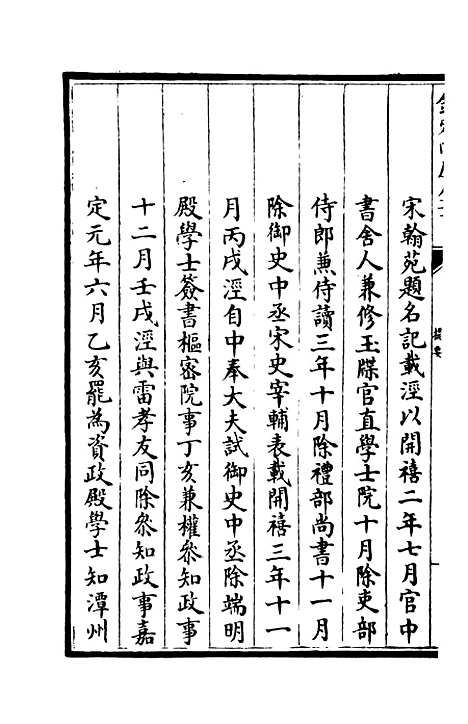 宋翰苑題名記載涇以開禧二年七月官中
書舍人兼修玉牒官直學士院十月除吏部
侍郎兼侍讀三年十月除禮部尚書十一月
除御史中丞宋史宰輔表載開禧三年十一
月丙戌涇自中奉大夫試御史中丞除端明
殿學士簽書樞密院事丁亥兼權叅知政事
十二月壬戌涇與雷孝友同除叅知政事嘉
定元年六月乙亥罷為資政殿學士知潭州